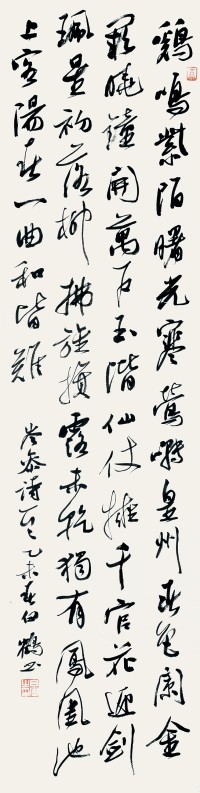 鷄鳴紫陌曙光寒鶯囀皇州春色闌金
闕曉鐘開萬户玉階仙仗擁千官花迎劍
珮星初落柳拂旌旗露未乾獨有鳳凰池
上客陽春一曲和皆難
岑參詩 乙未春白鶴書